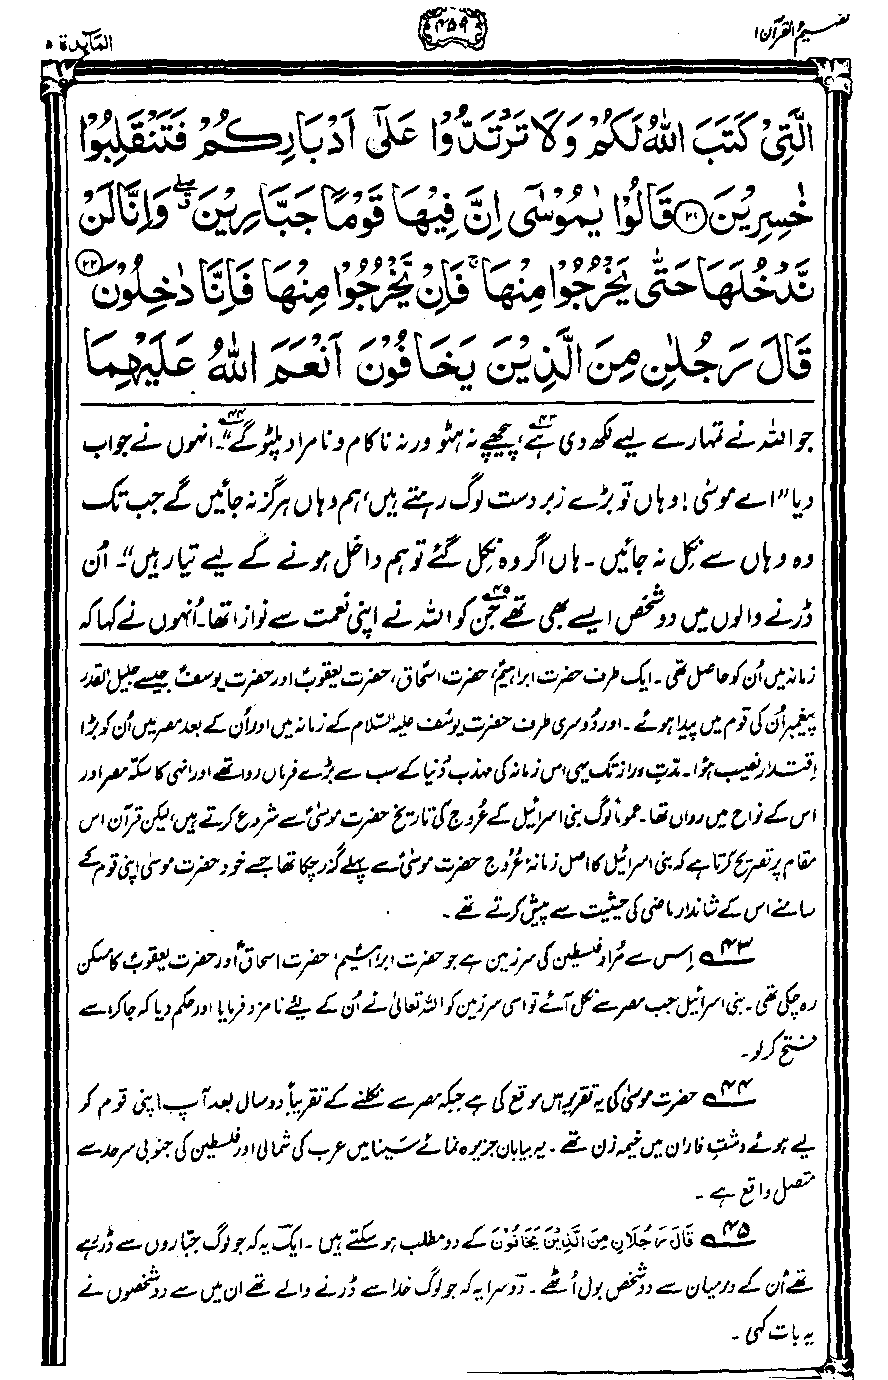 تفہیم القرآن ۱
۴۵۹
المآئدۃ ۵
الَّتِیْ كَتَبَ اللّٰهُ لَكُمْ وَلَا تَرْتَدُّوْا عَلٰٓی اَدْبَارِكُمْ فَتَنْقَلِبُوْا
خٰسِرِیْنَ ﴿۲۱﴾ قَالُوْا یٰمُوْسٰۤی اِنَّ فِیْهَا قَوْمًا جَبَّارِیْنَ ۖۗ وَاِنَّا لَنْ
نَّدْخُلَهَا حَتّٰی یَخْرُجُوْا مِنْهَا ۚ فَاِنْ یَّخْرُجُوْا مِنْهَا فَاِنَّا دٰخِلُوْنَ ﴿۲۲﴾
قَالَ رَجُلٰنِ مِنَ الَّذِیْنَ یَخَافُوْنَ اَنْعَمَ اللّٰهُ عَلَیْهِمَا
جو اللہ نے تمہارے لیے لکھ دی ہے،۴۳ پیچھے نہ ہٹو ورنہ ناکام و نامراد پلٹو گے۴۴“۔ انہوں نے جواب
دیا ”اے موسیٰ! وہاں تو بڑے زبردست لوگ رہتے ہیں، ہم وہاں ہرگز نہ جائیں گے جب تک
وہ وہاں سے نکل نہ جائیں۔ ہاں اگر وہ نکل گئے تو ہم داخل ہونے کے لیے تیار ہیں“۔ اُن
ڈرنے والوں میں دو شخص ایسے بھی تھے۴۵ جن کو اللہ نے اپنی نعمت سے نوازا تھا۔ اُنہوں نے کہا کہ
زمانہ میں اُن کو حاصل تھی۔ ایک طرف حضرت ابراہیمؑ، حضرت اسحاقؑ، حضرت یعقوبؑ اور حضرت یوسفؑ جیسے جلیل القدر
پیغمبر اُن کی قوم میں پیدا ہوئے۔ اور دُوسری طرف حضرت یوسف علیہ السّلام کے زمانہ میں اور اُن کے بعد مصر میں اُن کو بڑا
اقتدار نصیب ہوا۔ مدّتِ دراز تک یہی اس زمانہ کی مہذب دُنیا کے سب سے بڑے فرماں روا تھے اور انہی کا سکّہ مصر اور
اس کے نواح میں رواں تھا۔ عموماً لوگ بنی اسرائیل کے عُروج کی تاریخ حضرت موسیٰؑ سے شروع کرتے ہیں، لیکن قرآن اس
مقام پر تصریح کرتا ہے کہ بنی اسرائیل کا اصل زمانۂ عُروج حضرت موسیٰؑ سے پہلے گذر چکا تھا جسے خود حضرت موسیٰ اپنی قوم کے
سامنے اس کے شاندار ماضی کی حیثیت سے پیش کرتے تھے۔
۴۳؎ اِس سے مُراد فلسطین کی سرزمین ہے جو حضرت ابراہیمؑ، حضرت اسحاقؑ اور حضرت یعقوبؑ کا مسکن
رہ چکی تھی۔ بنی اسرائیل جب مصر سے نکل آئے تو اسی سرزمین کو اللہ تعالیٰ نے اُن کے لئے نامزد فرمایا اور حکم دیا کہ جا کر اسے
فتح کر لو۔
۴۴؎ حضرت موسیٰؑ کی یہ تقریر اس موقع کی ہے جبکہ مصر سے نکلنے کے تقریباً دو سال بعد آپ اپنی قوم کو
لیے ہوئے دشتِ فاران میں خیمہ زن تھے۔ یہ بیابان جزیرہ نمائے سَینا میں عرب کی شمالی اور فلسطین کی جنوبی سرحد سے
متصل واقع ہے۔
۴۵؎ قَالَ رَجُلَانِ مِنَ الَّذِیْنَ یَخَافُوْنَ کے دو مطلب ہو سکتے ہیں۔ ایک یہ کہ جو لوگ جبّاروں سے ڈر رہے
تھے اُن کے درمیان سے دو شخص بول اُٹھے۔ دُوسرا یہ کہ جو لوگ خدا سے ڈرنے والے تھے ان میں سے دو شخصوں نے
یہ بات کہی۔